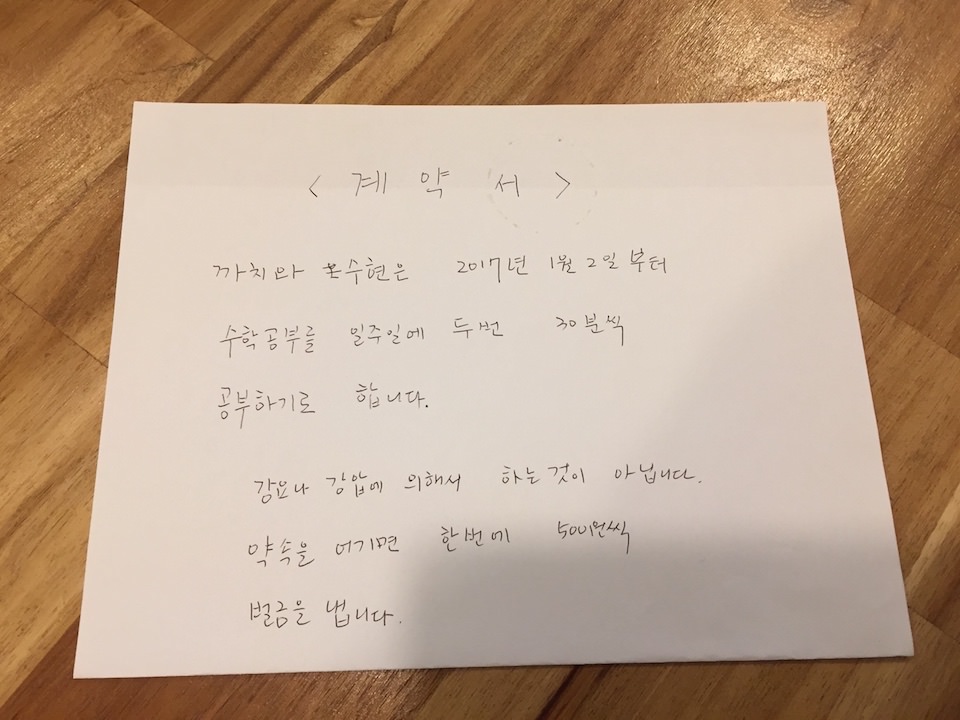 < 계 약 서 >
까치와 수현은 2017년 1월 2일 부터
수학공부를 일주일에 두번 30분씩
공부하기로 합니다.
강요나 강압에 의해서 하는것이 아닙니다.
약속을 어기면 한번에 500원씩
벌금을 냅니다.